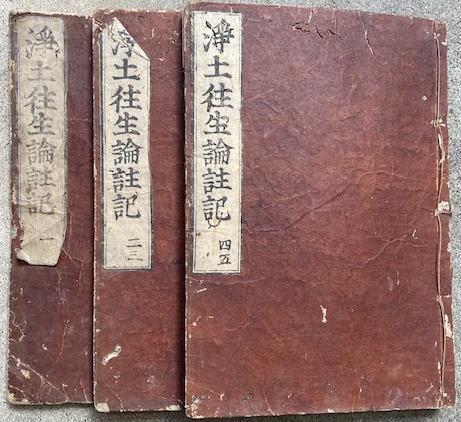 淨土往生論註記 四五
淨土往生論註記 二三
淨土往生論註記 一